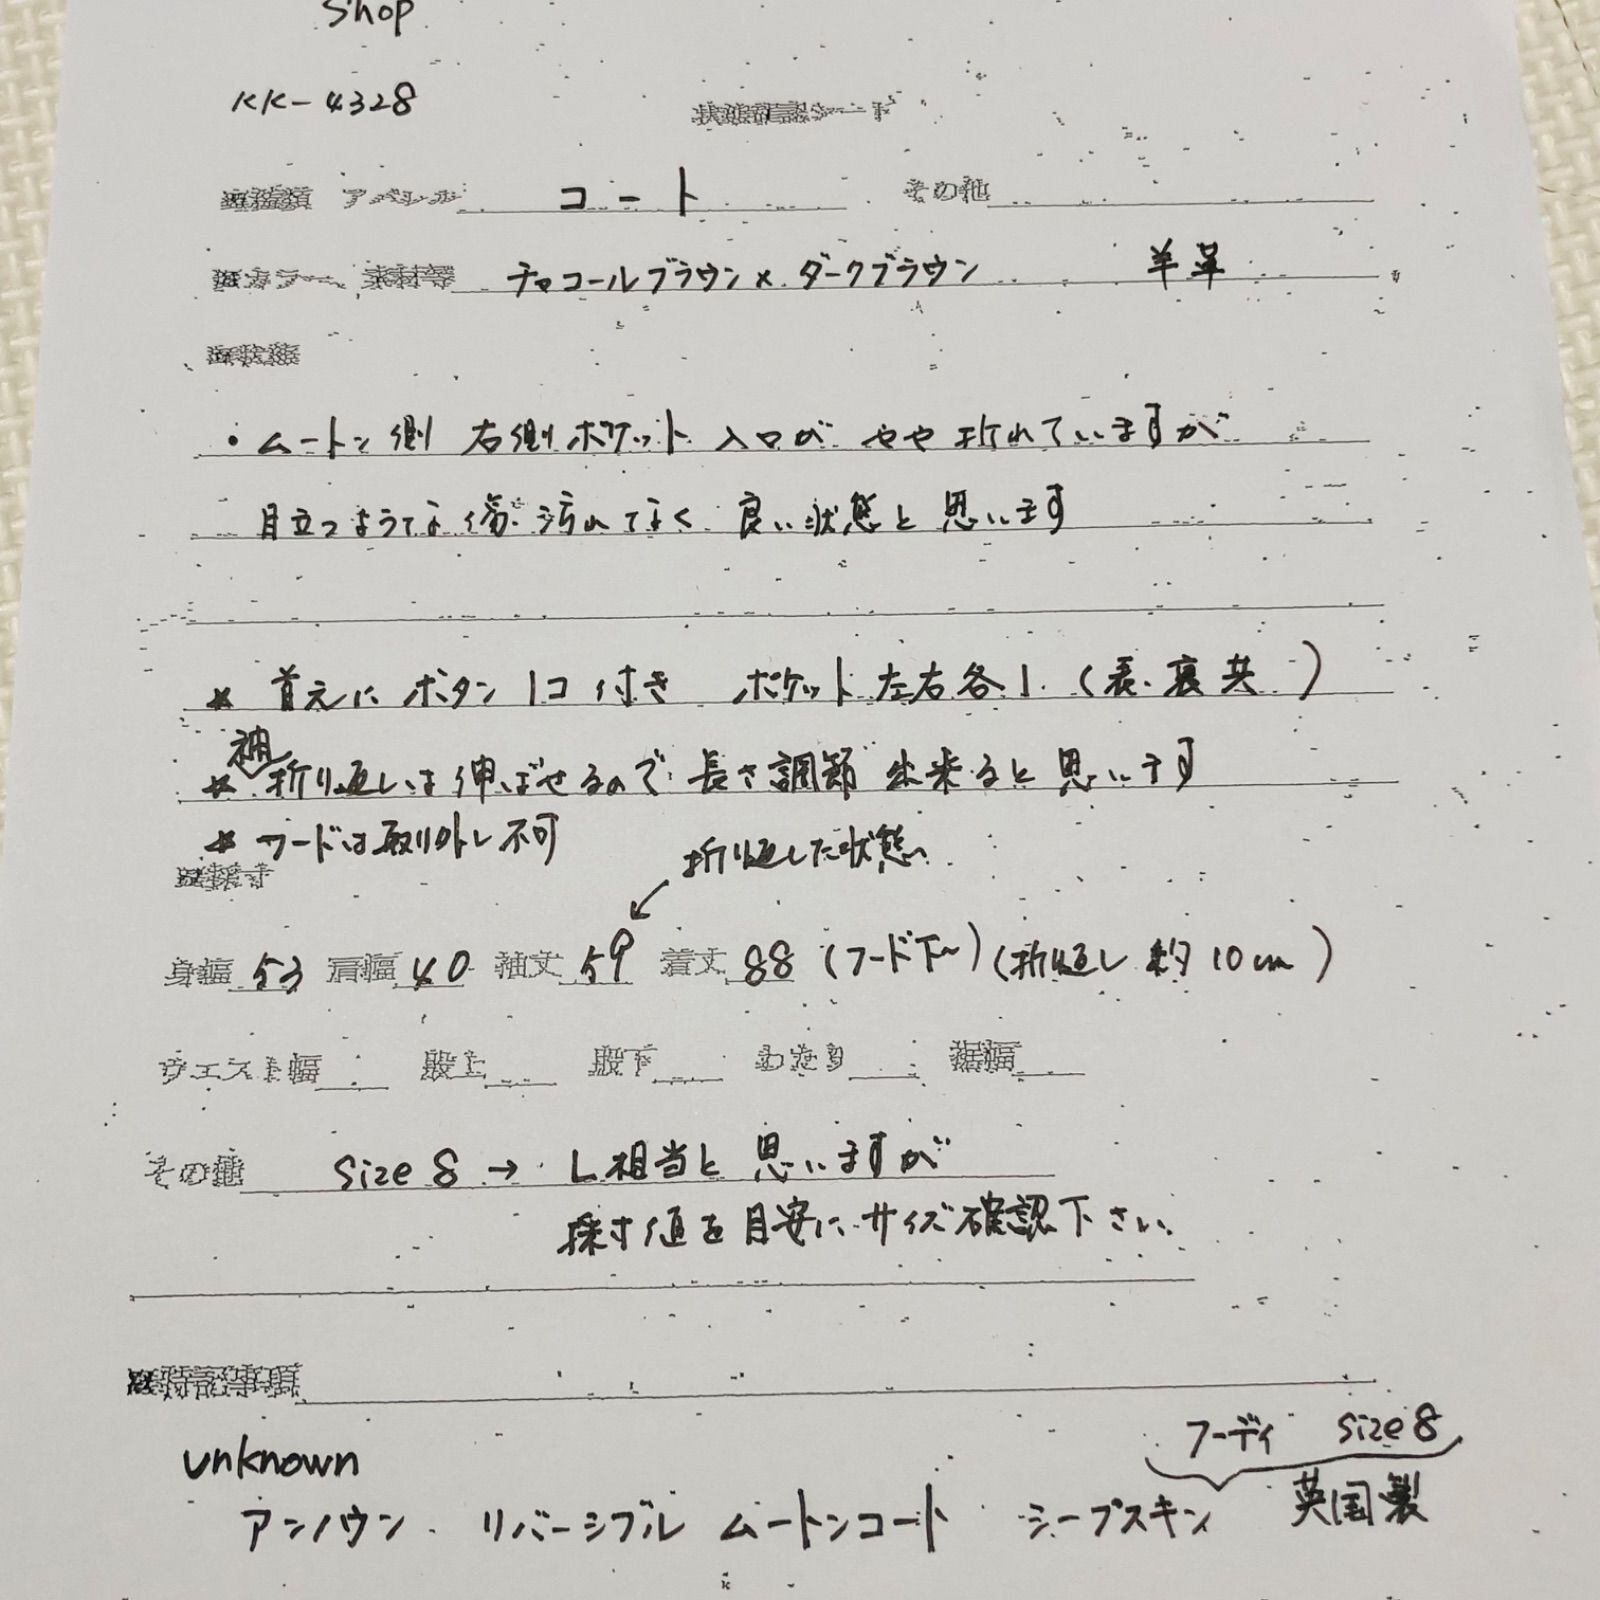 Shop
KK-4328
状態確認シート
アパレル コート その他
カラー、素材等 チャコールブラウン×ダークブラウン 羊革
・ムートン側 右側ポケット入口が やや折れていますが
目立つような傷.汚れてなく 良い状態と思います
* 首元に ボタン1コ付き ポケット左右各1.(表.裏共)
* 袖折り返しは伸ばせるので長さ調節 出来ると思います
* フードは取り外し不可
採寸 折り返した状態
身幅 53 肩幅 40 袖丈 59 着丈 88 (フード下~) (折り返し 約10cm)
ウエスト幅 股上 股下 わたり 裾幅
その他 Size 8 → L相当と 思いますが
採寸値を目安にサイズ確認下さい
特記事項
フーディ Size 8
unknown
アンノウン リバーシブル ムートンコート シープスキン 英国製